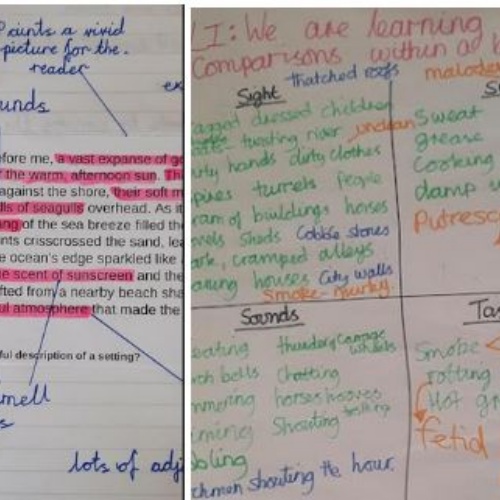 Paints a vivid
picture for the
reader
ex
unds
efore me, a vast expanse of go
f the warm, afternoon sun. Th
against the shore, their soft m
lls of seagulls overhead. As it
ng of the sea breeze filled the
nts crisscrossed the sand, lea
e ocean's edge sparkled like
e scent of sunscreen and the
fted from a nearby beach sha
ul atmosphere that made the
ful description of a setting?
mell
s
lots of adj
LI: We are learning
Comparisons within a
thatched roofs malodo
Sight S
agged dressed children
twisting river unclean Sweat
rty hands dirty clothes grease
pires turrets People Cooking
ram of buildings horses damp
vels Sheds Cobble stones Putresc
ark, cramped alleys
aning houses City walls
Smoke - murky
Sounds Tas
eating thundery carriage wheels Smoke
ch bells Chatting rotting
mmering horses hooves Hot gr
ming Shouting fetid
bbling
chmen shouting the hour.